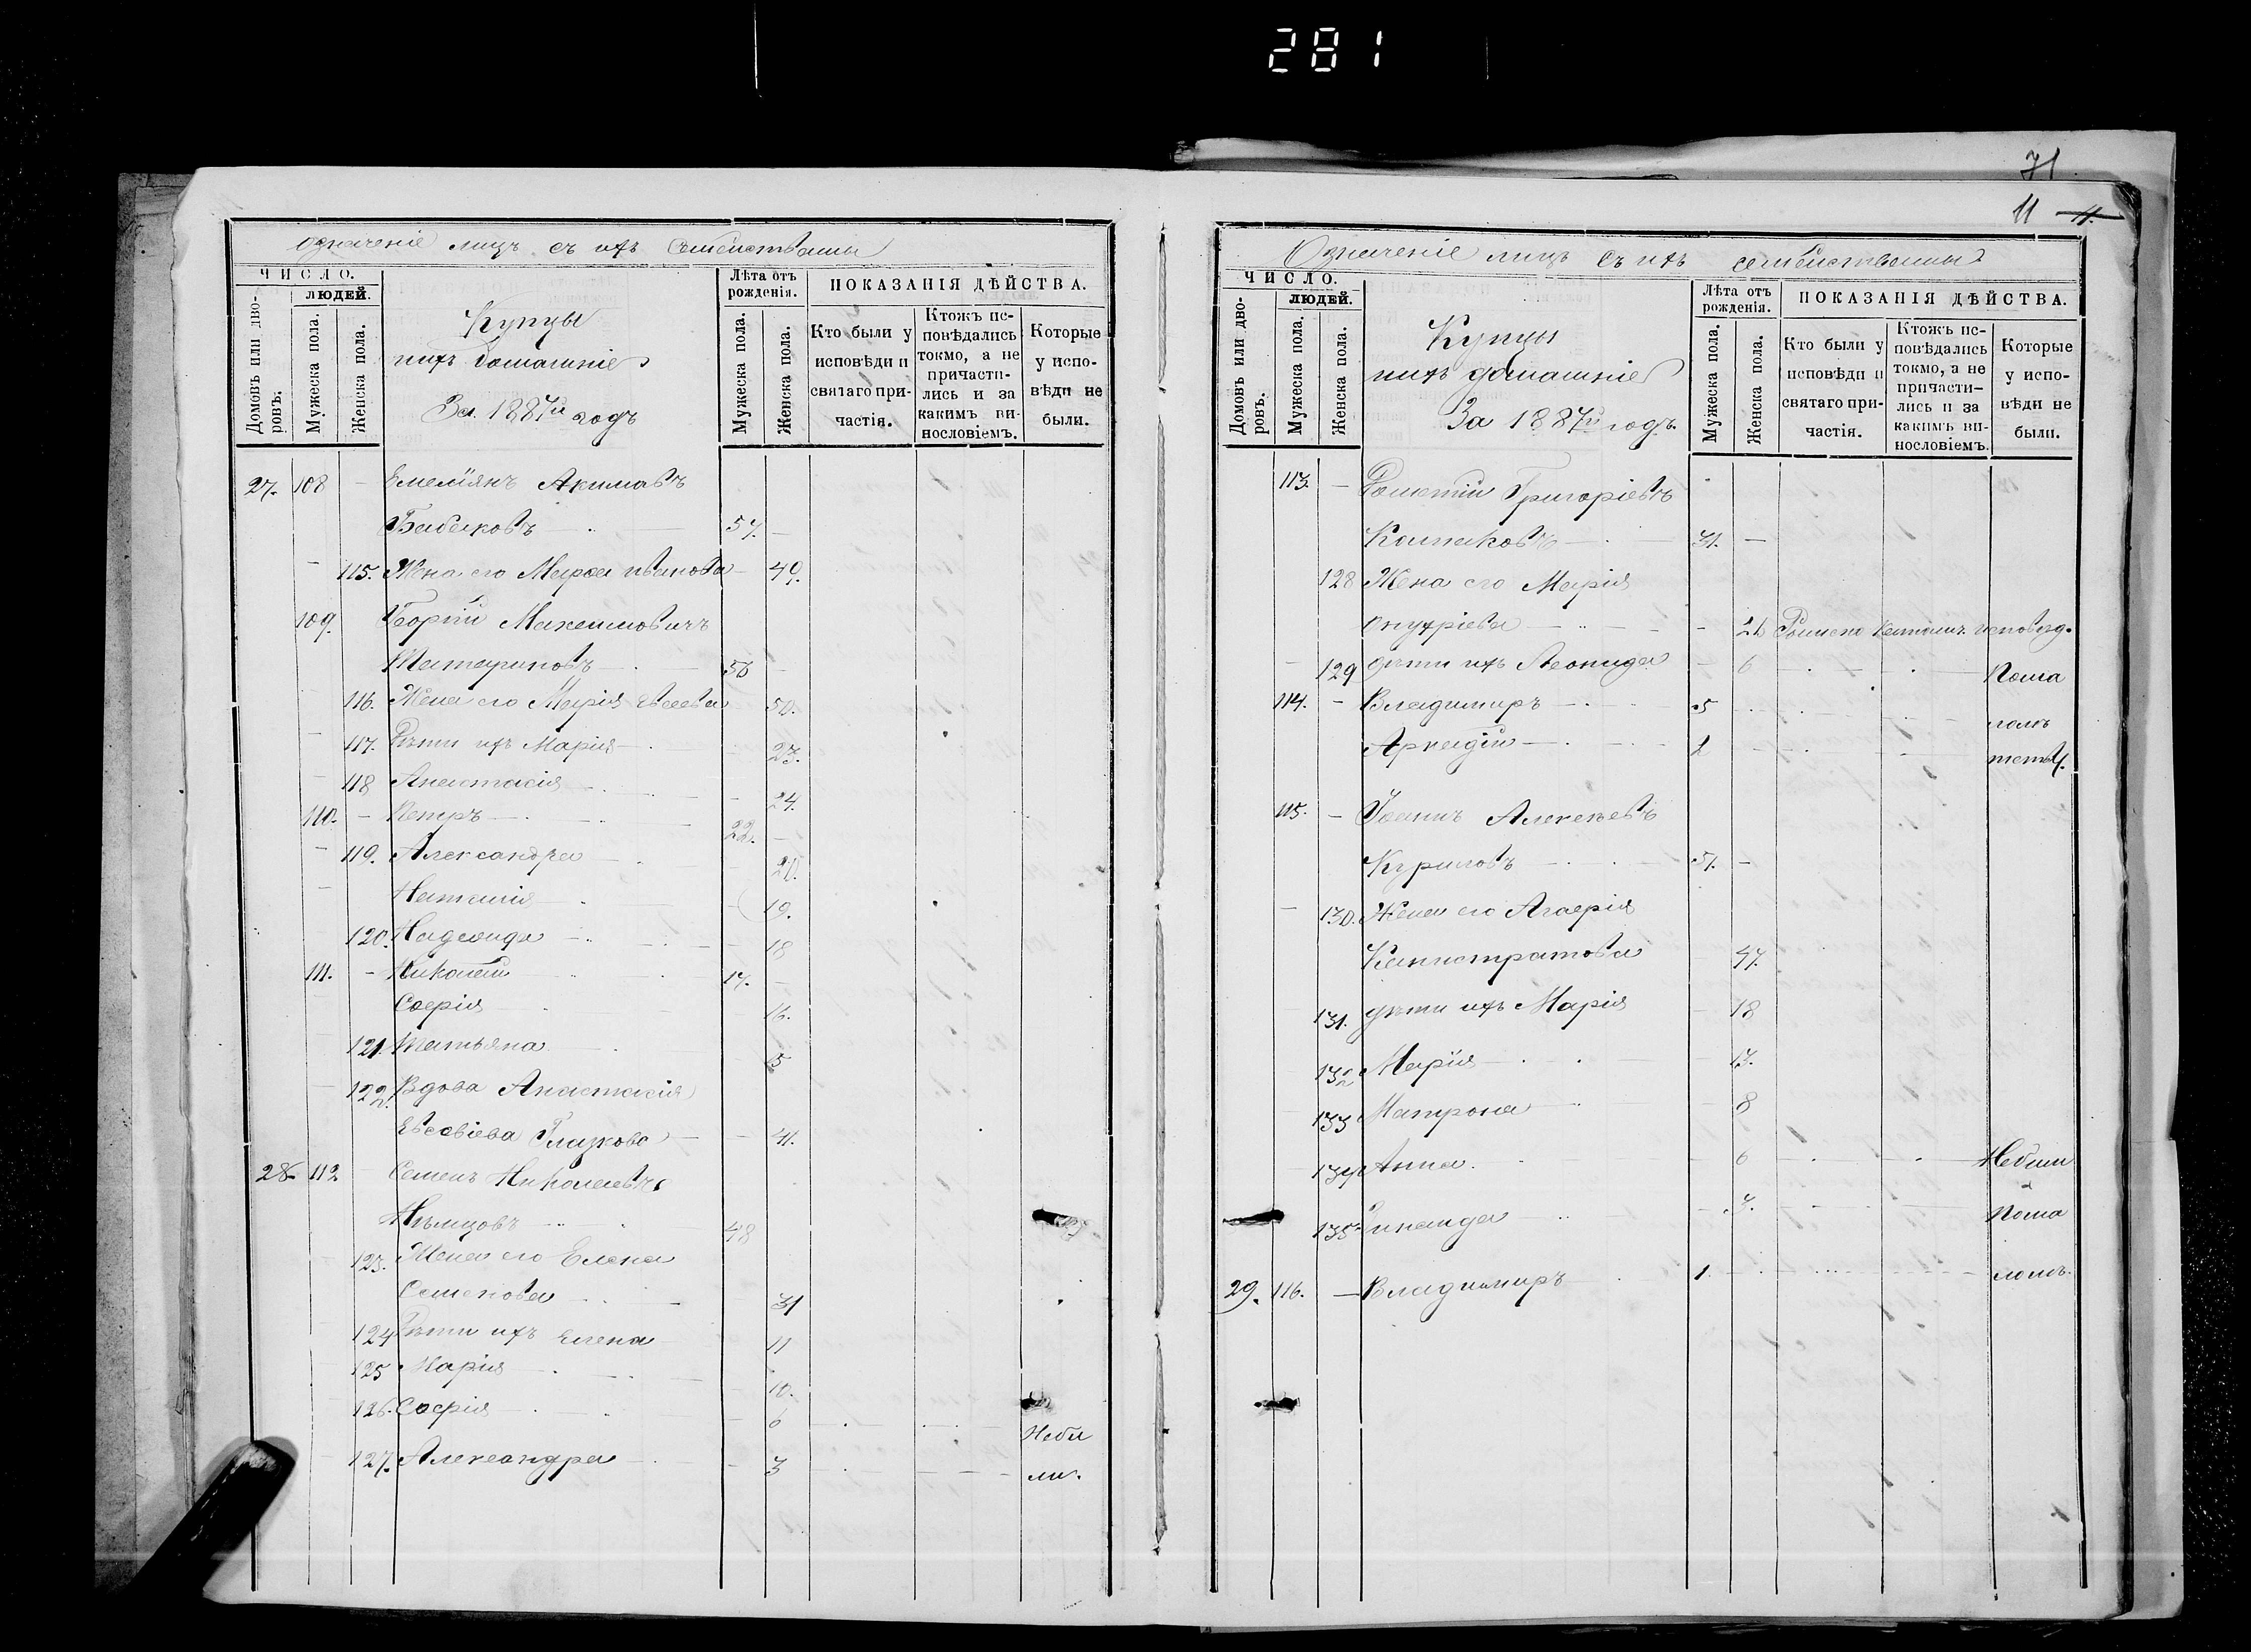 281
71
11 11.
означеніе лицъ съ ихъ семействами
ЧИСЛО.
Домовъ или дворовъ.
людей.
Мужеска пола.
Женска пола.
Купцы
и ихъ домашніе
За 1887й годъ
Лѣта отъ рожденія.
Мужеска пола.
Женска пола.
ПОКАЗАНІЯ ДѢЙСТВА.
Кто были у исповѣди и святаго причастія.
Ктожъ исповѣдались токмо, а не причастились и за какимъ винословіемъ.
Которые у исповѣди не были.
27. 108 - Емеліянъ Акимовъ
Бабаковъ 57. -
115. Жена его Марѳа Иванова 49.
109. Георгій Максимовичъ
Татариновъ 56 -
116. Жена его Марія Евсеева 50.
117. Дѣти ихъ Марія 23.
118 Анастасія 24.
110. - Петръ 22. -
119. Александра 20.
Наталія 19.
120. Надежда 18
111. - Николай 17. -
Софія 16.
121. Татьяна 15
122. Вдова Анастасія
Евсевіева Глазкова 41.
28. 112 Семенъ Николаевъ
Нѣмцовъ 48
123. Жена его Елена
Семенова 31
124 Дѣти ихъ Елена 11
125 Марія 10.
126. Софія 6
Небы
127. Александра 3 ли.
Означеніе лицъ съ ихъ семействами
ЧИСЛО.
Домовъ или дворовъ.
людей.
Мужеска пола.
Женска пола.
Купцы
и ихъ домашніе
За 1887й годъ.
Лѣта отъ рожденія.
Мужеска пола.
Женска пола.
ПОКАЗАНІЯ ДѢЙСТВА.
Кто были у исповѣди и святаго причастія.
Ктожъ исповѣдались токмо, а не причастились и за какимъ винословіемъ.
Которые у исповѣди не были.
113. - Григоріевъ
31. -
128 Жена его Марія
Онуфріева 26 Римско католич. исповѣд.
129 дѣти ихъ Леонида 6 Пома
114. - Владимиръ 5 лолѣ
Аркадій 2 тству.
115. - Іоаннъ Алексѣевъ
Куриловъ 51. -
130. Жена его Агафія
Каллистратова 47.
131. дѣти ихъ Марія 18
132 Марія 13.
133 Матрона 8
134 Анна. 6 Небыли
135. Зинаида 3. Пома
29. 116. - Владимиръ 1. лолѣ.